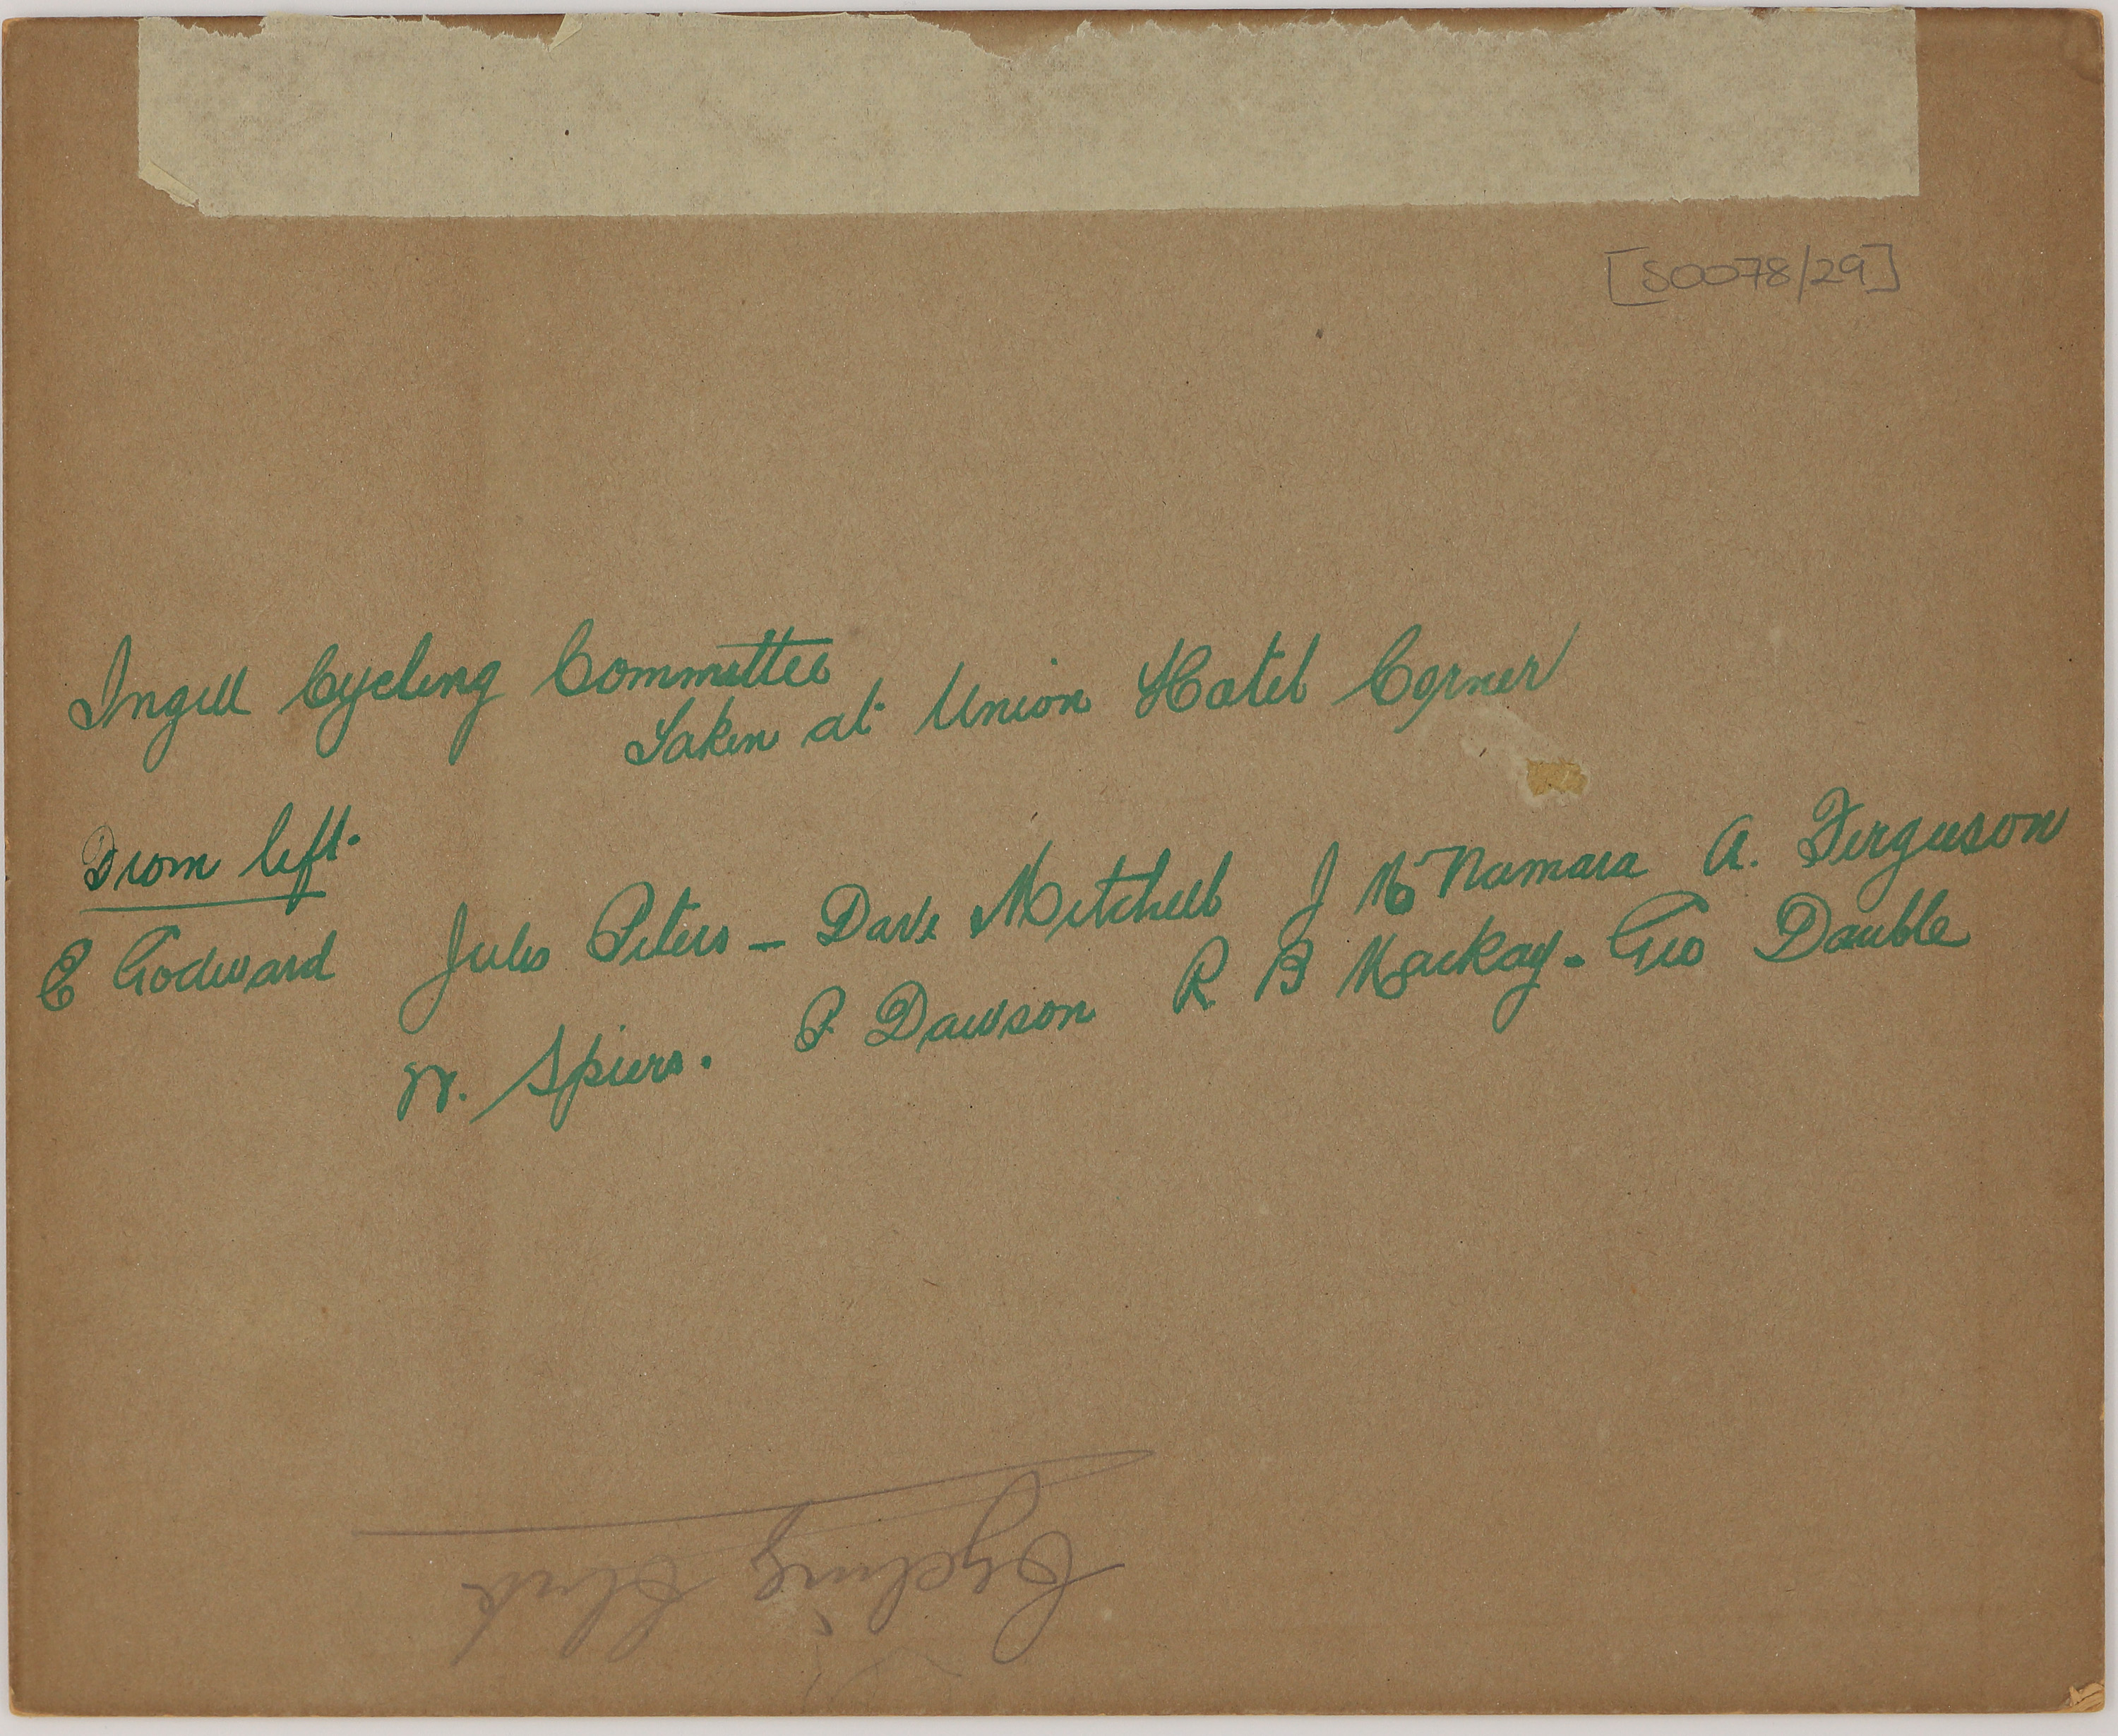 [S0078/29]
Ingill Cycling Committee
Taken at Union Hotel Corner
From left.
E Godward Jules Peters - Dave Mitchell J McNamara A. Ferguson
W. Spiers. P Dawson R B Mackay - Geo Dauble
Cycling Club